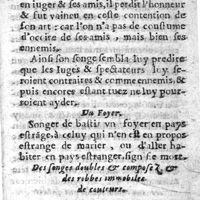 en iuger & ses amis, il perdit l'honneur
& fut vaincu en ceste contention de
son art: car l'on n'a pas de coustume
d'occire de ses amis, mais bien ses
ennemis.
Ainsi son songe sembla luy predire
que les Iuges & spectateurs luy se-
roient contraires & comme ennemis, &
puis encores estant tuez ne luy pour-
roient ayder.
Du Foyer.
Songer de bastir vn foyer en pays
estrãge, à celuy qui n'en est en propos
estrange de marier, ou d'aller ha-
biter en pays estranger, sign fie mort.
Des songes doubles & composez, &
des robbes immobiles
de couleurs.